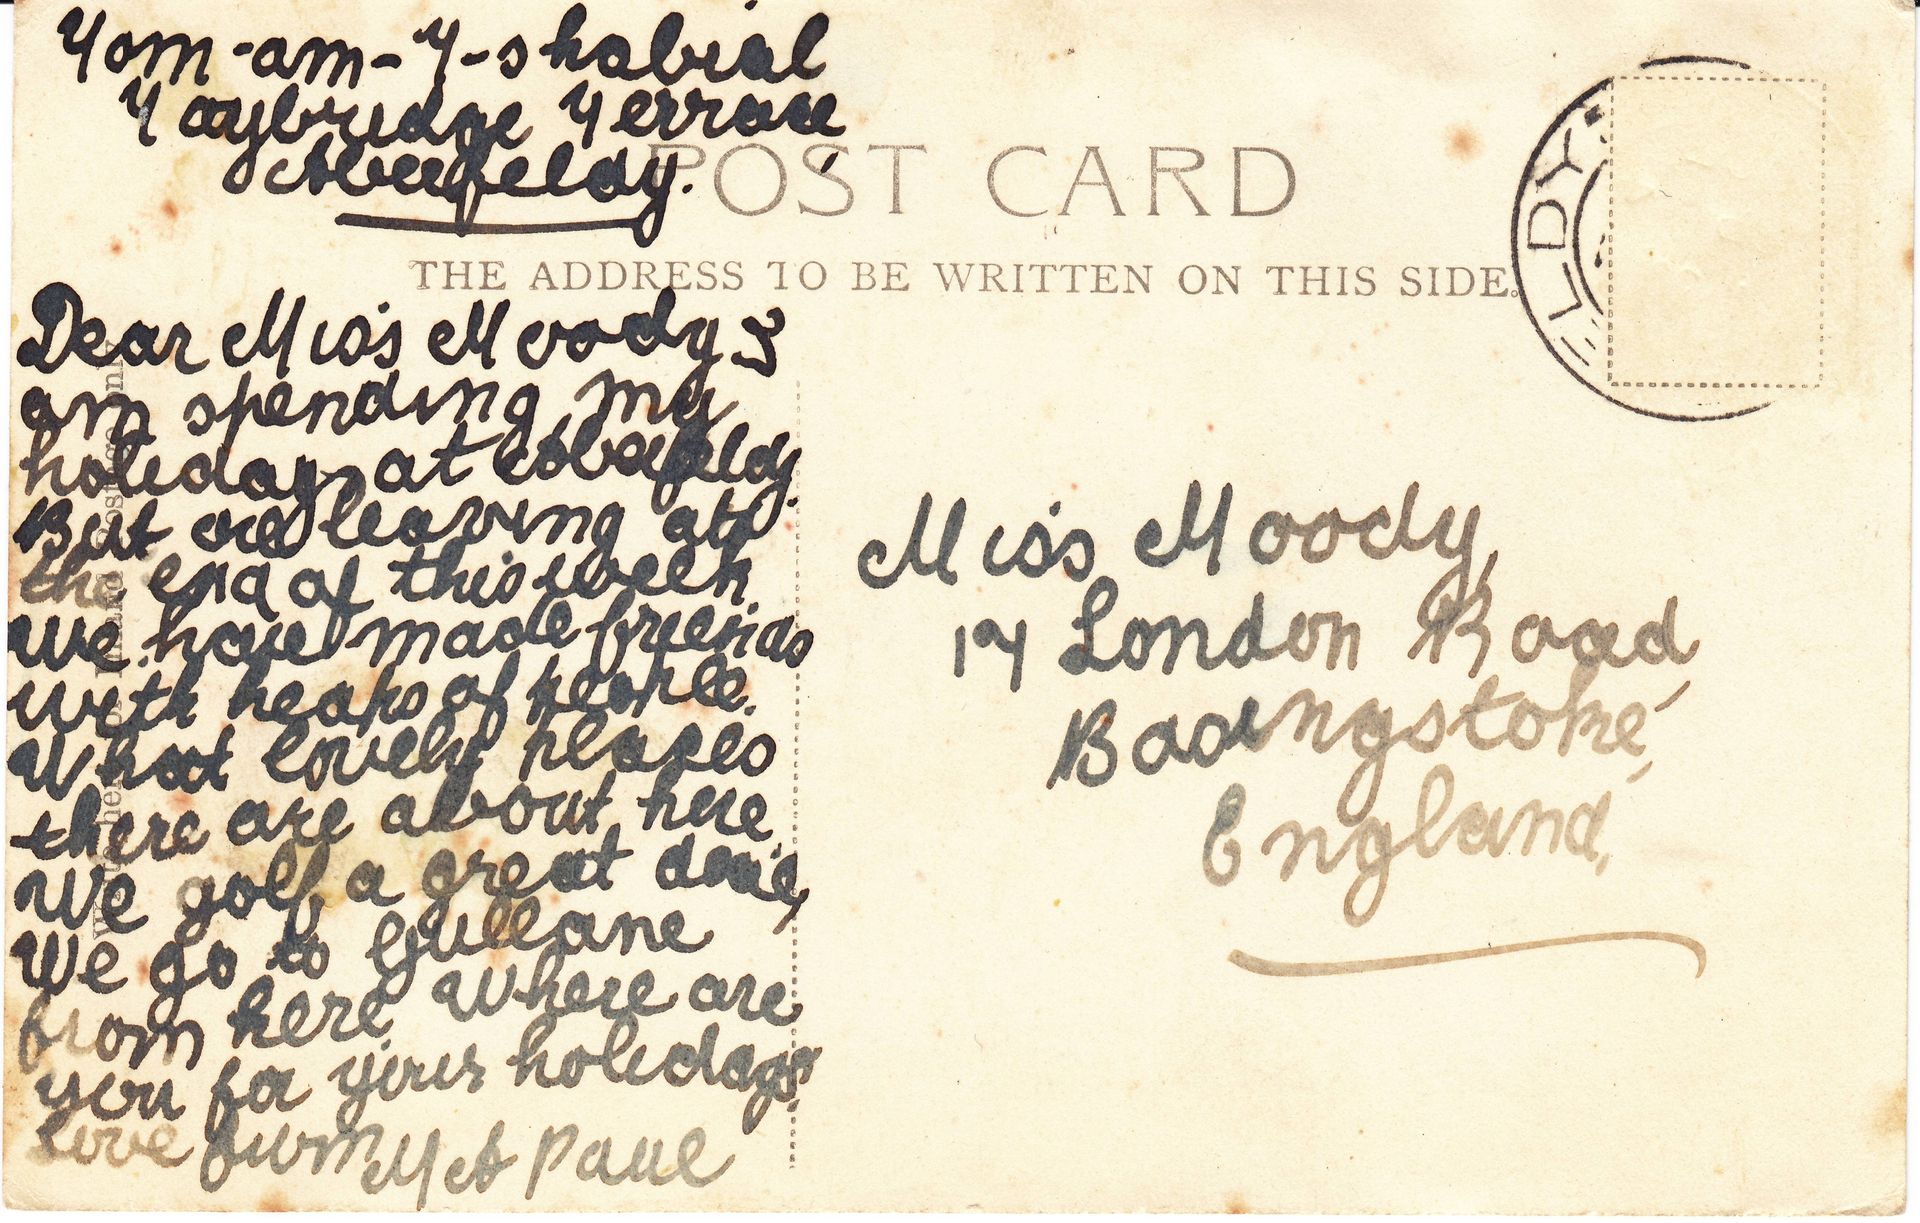 Tom-am-T-shabial
Taybridge Terrace,
Aberfeldy.
POST CARD
THE ADDRESS TO BE WRITTEN ON THIS SIDE.
ELDY
Dear Miss Moody I
am spending my
holidays at Aberfeldy.
But are leaving at
the end of this week
We have made freinds
with heaps of people.
What lovely places
there are about here
We golf a great deal,
We go to Gullane
from here Where are
you for your holidays.
Love from M A Paul
Miss Moody,
17 London Road,
Basingstoke,
England,